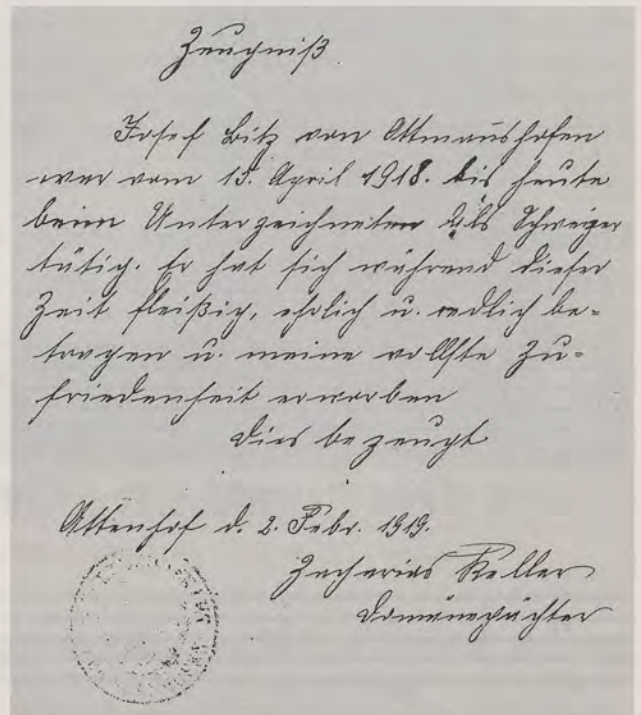 Zeugniß
Josef Bitz von Ottmannshofen
war vom 15. April 1918. bis heute
beim Unterzeichneten als Schweizer
tätig. Er hat sich während dieser
Zeit fleißig, ehrlich u. redlich be=
tragen u. meine vollste Zu=
friedenheit erworben
Dies bezeugt
Attenhof d. 2. Febr. 1919.
Zacharias Keller
Domänepächter